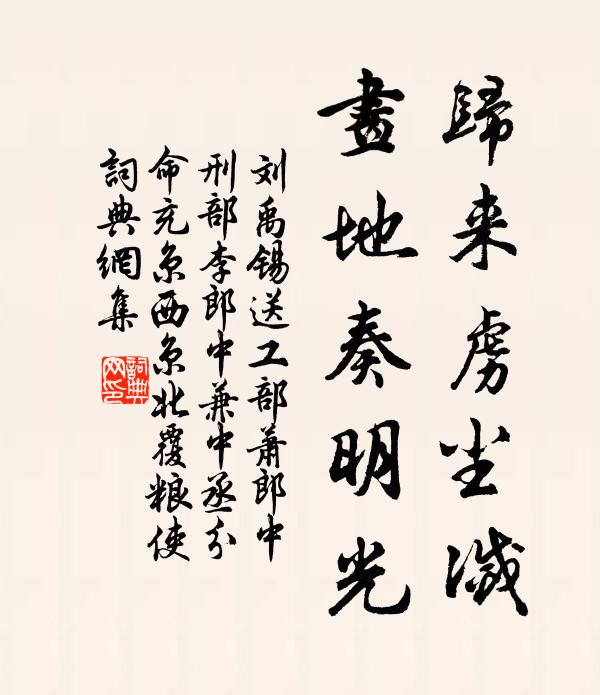 歸来虜尘滅
畫地奏明光
刘禹锡送工部蕭郎中
刑部李郎中兼中丞分
命充京西京北覆粮使
詞典網集
詞典網印